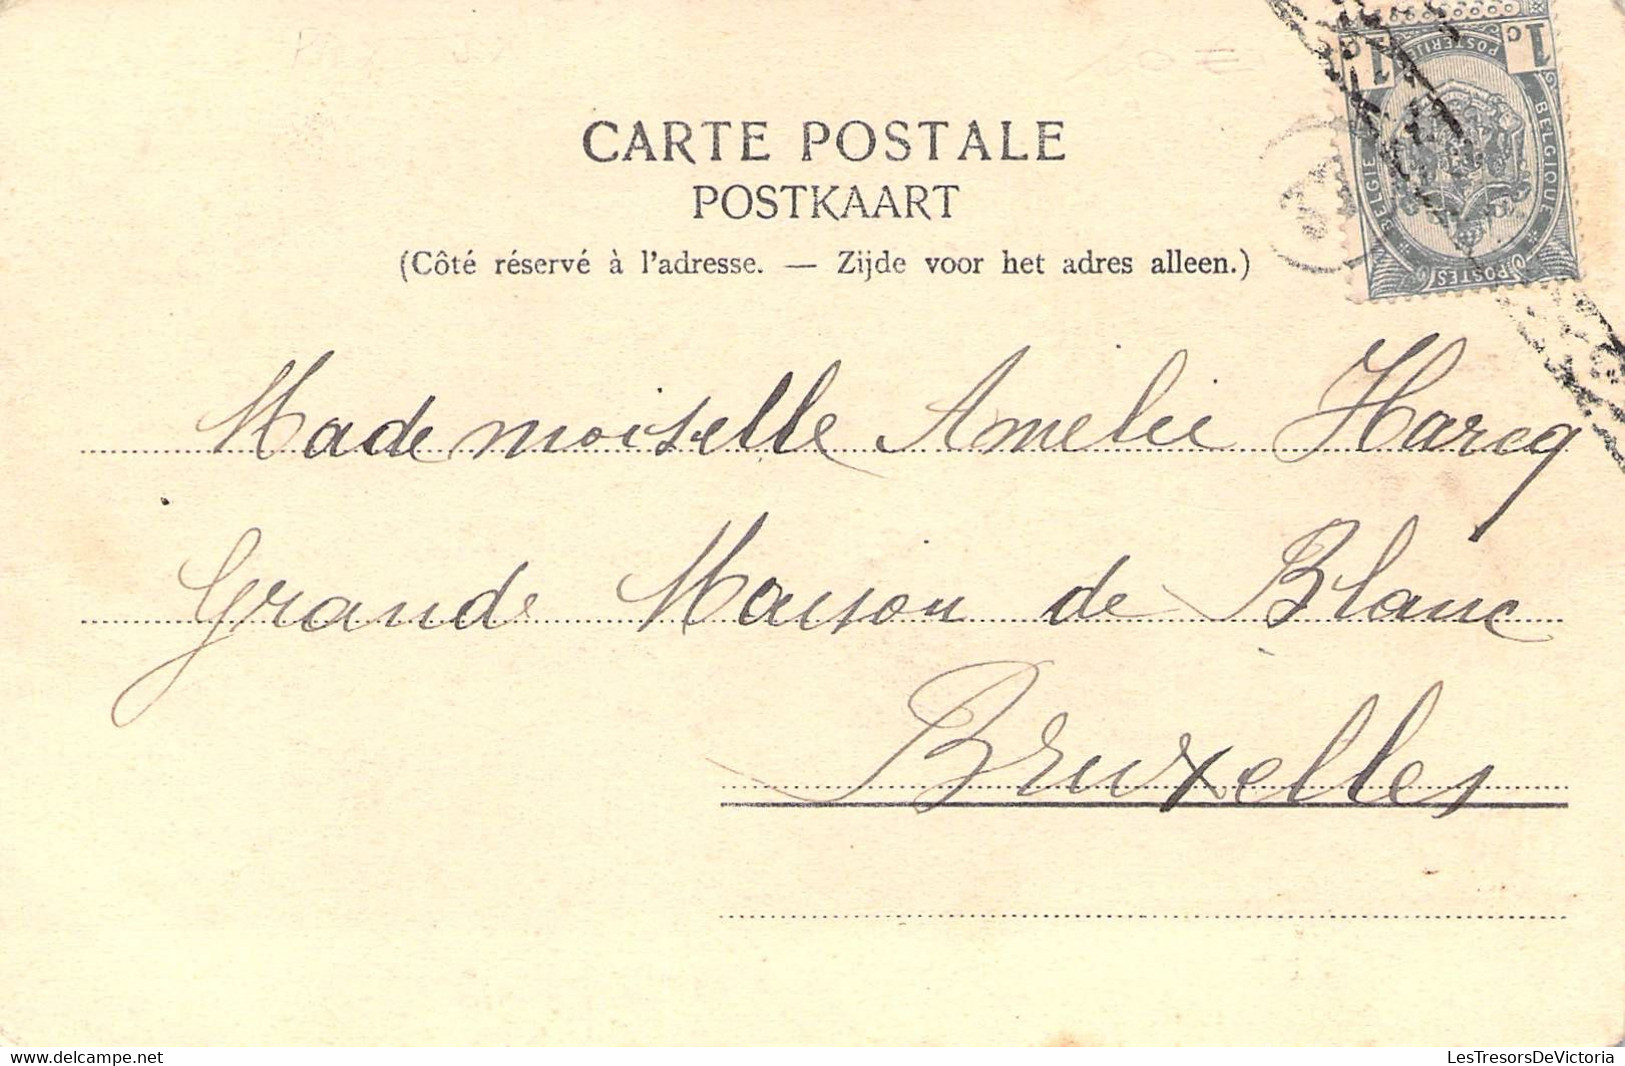 1c 1c
POSTERIJEN
BELGIE BELGIQUE
POSTES
CARTE POSTALE
POSTKAART
(Côté réservé à l'adresse. — Zijde voor het adres alleen.)
Mademoiselle Amelie Harcq
Grande Maison de Blanc
Bruxelles
delcampe.net
LesTresorsDeVictoria